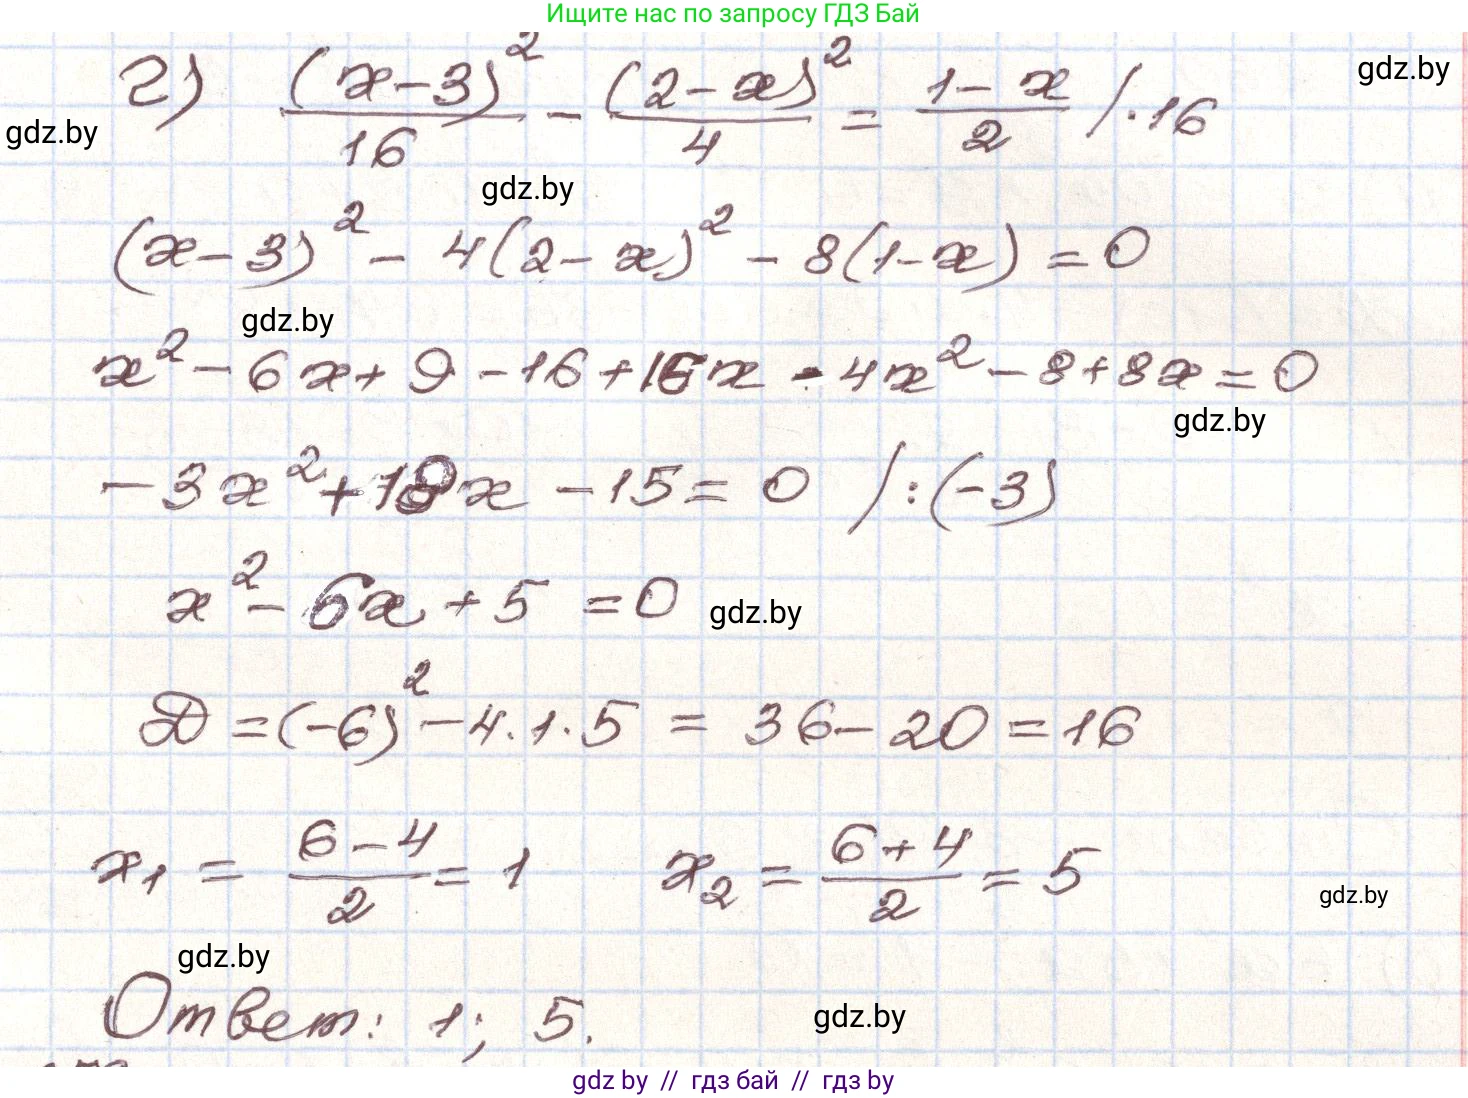 Ищите нас по запросу ГДЗ Бай
г) (x-3)²/16 - (2-x)²/4 = (1-x)/2 /·16
gdz.by
gdz.by
gdz.by
(x-3)² - 4(2-x)² - 8(1-x) = 0
gdz.by
x² - 6x + 9 - 16 + 16x - 4x² - 8 + 8x = 0
gdz.by
-3x² + 18x - 15 = 0 /:(-3)
x² - 6x + 5 = 0
gdz.by
D = (-6)² - 4·1·5 = 36 - 20 = 16
x₁ = (6-4)/2 = 1 x₂ = (6+4)/2 = 5
gdz.by
gdz.by
Ответ: 1; 5.
gdz.by
gdz by // гдз бай // gdz by